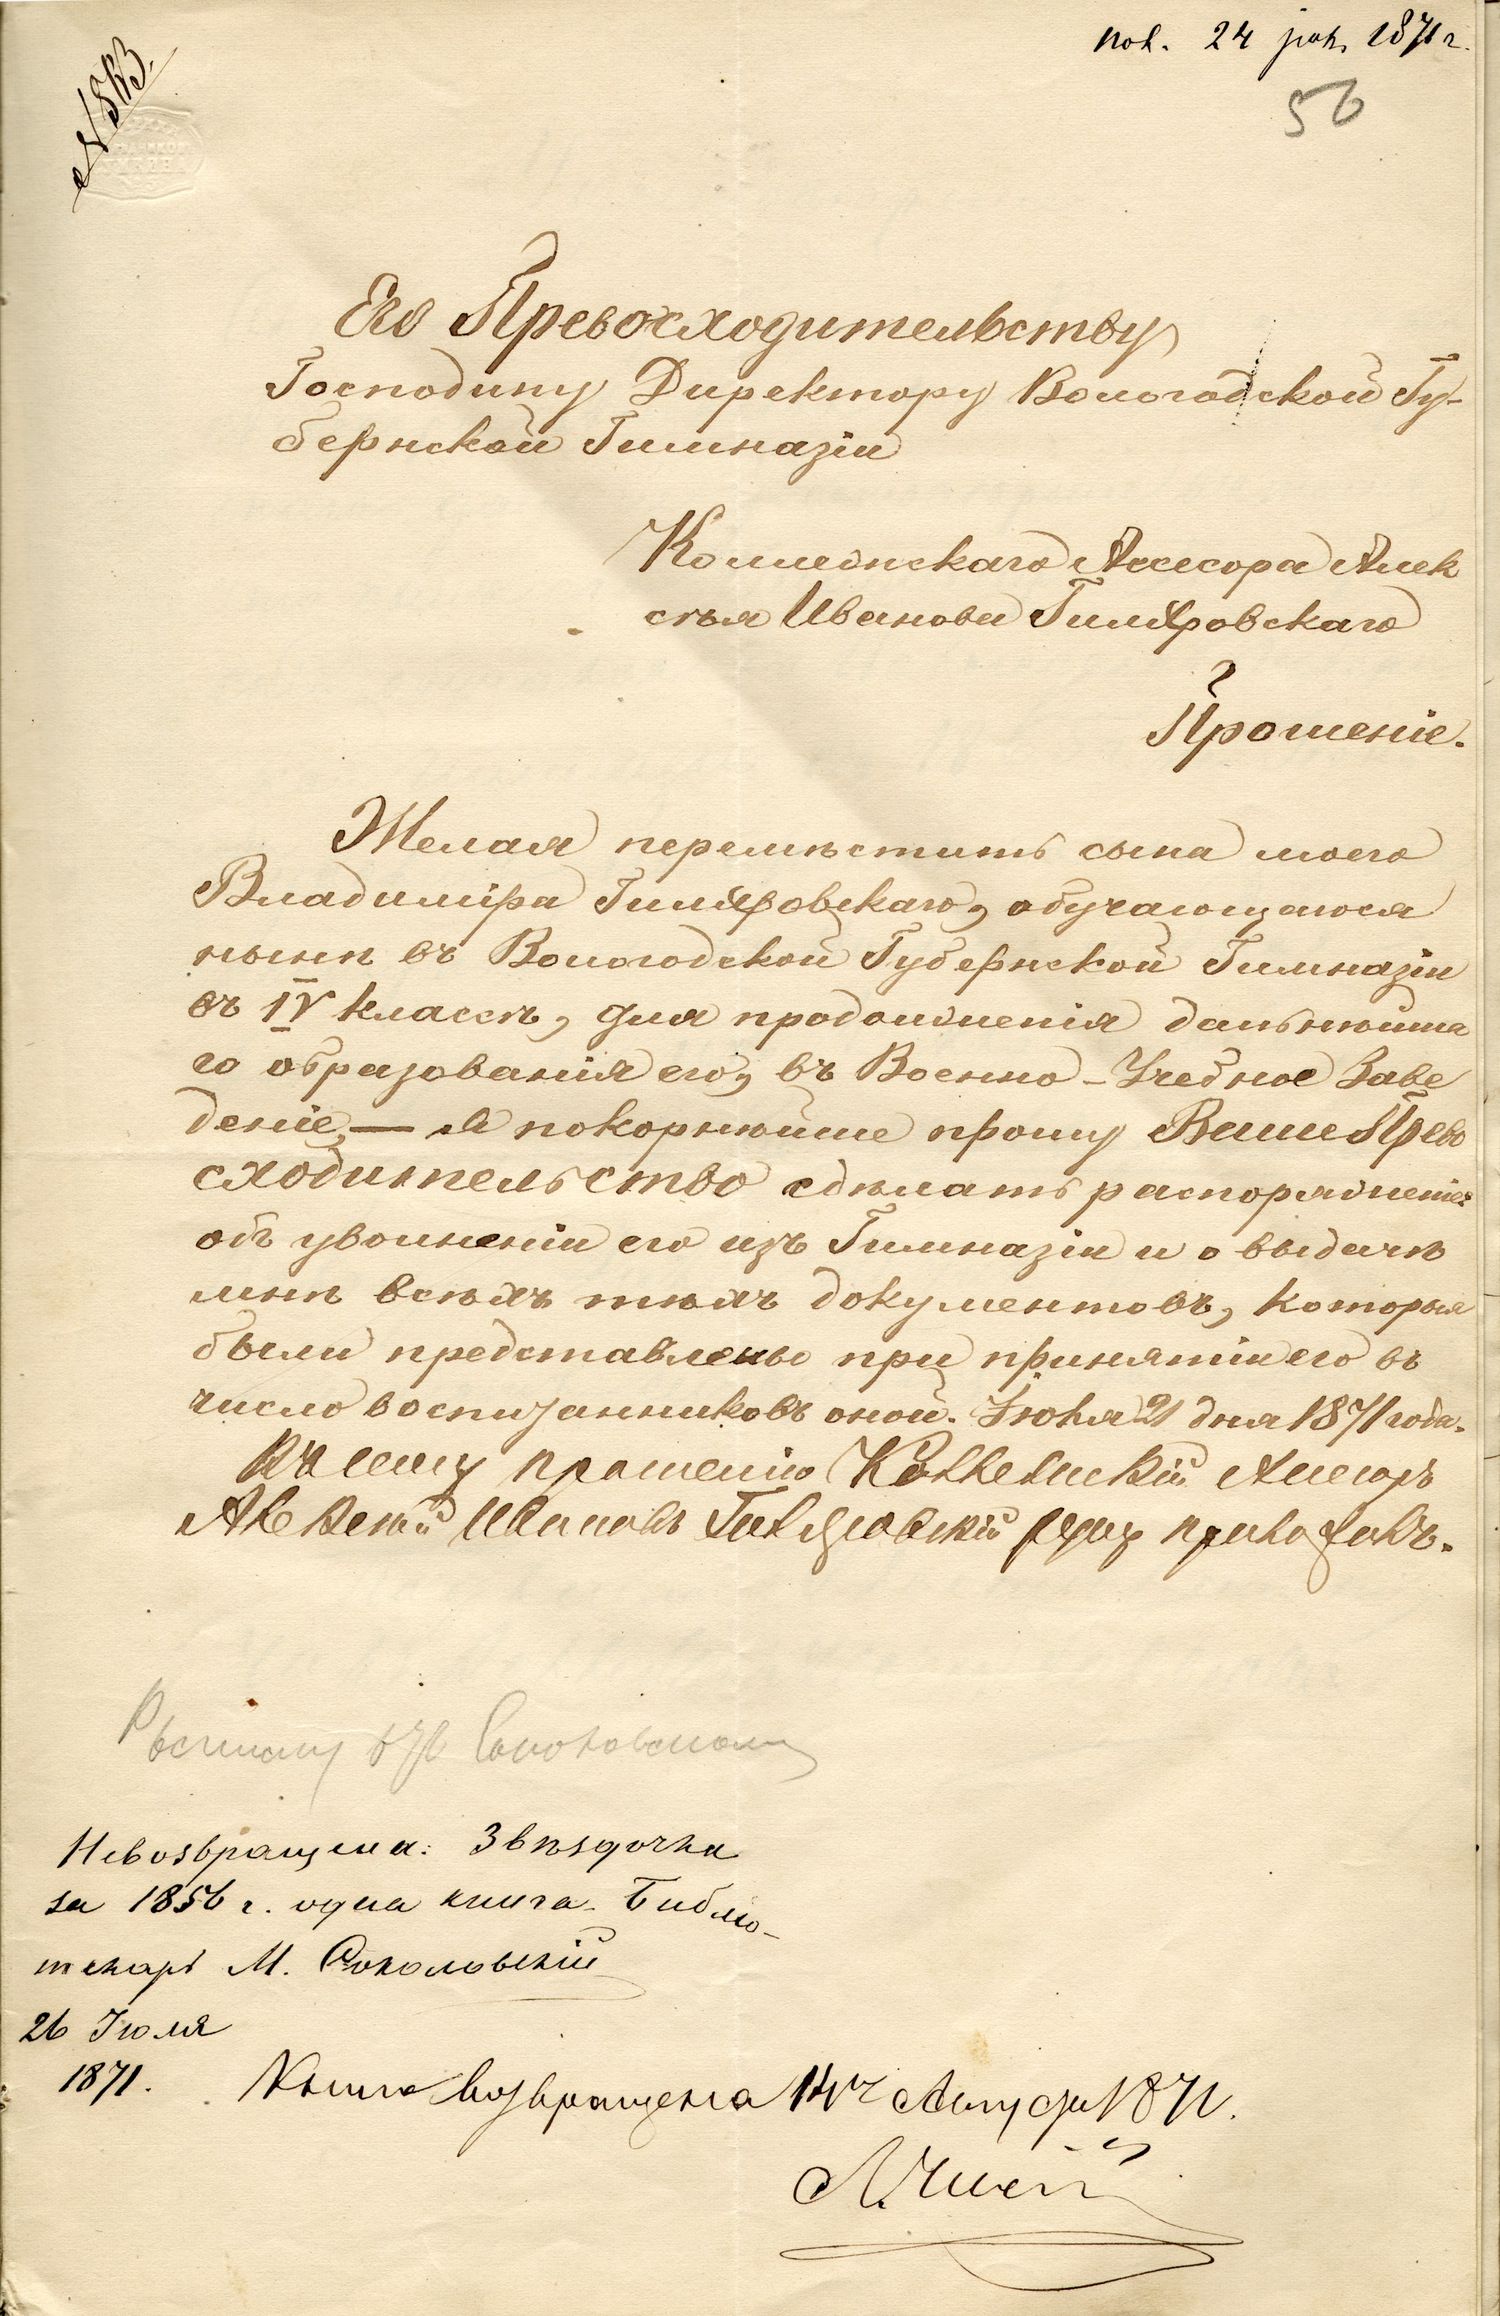 пол. 24 іюл. 1871 г.
№ 583.
56
Его Превосходительству
Господину Директору Вологодской Гу-
бернской Гимназіи
Коллежскаго Ассесора Алек
сѣя Иванова Гиляровскаго
Прошеніе.
Желая перемѣстить сына моего
Владиміра Гиляровскаго, обучающагося
нынѣ въ Вологодской Губернской Гимназіи
въ IV классѣ, для продолженія дальнѣйша
го образованія его, въ Военно-Учебное Заве
деніе, — я покорнѣйше прошу Ваше Прево
сходительство сдѣлать распоряженіе
объ увольненіи его изъ Гимназіи и о выдачѣ
мнѣ всѣхъ тѣхъ документовъ, которыя
были представлены при принятіи его въ
число воспитанниковъ оной. Іюля 21 дня 1871 года.
Къ сему прошенію Коллежскій Ассесоръ
Алексѣй Ивановъ Гиляровскій руку приложилъ.
Соколовскому
Невозвращена: Звѣздочка
за 1856 г. одна книга. Библіо-
текарь М. Соколовскій
26 Іюля
1871.
Книга возвращена 14 Августа 1871.